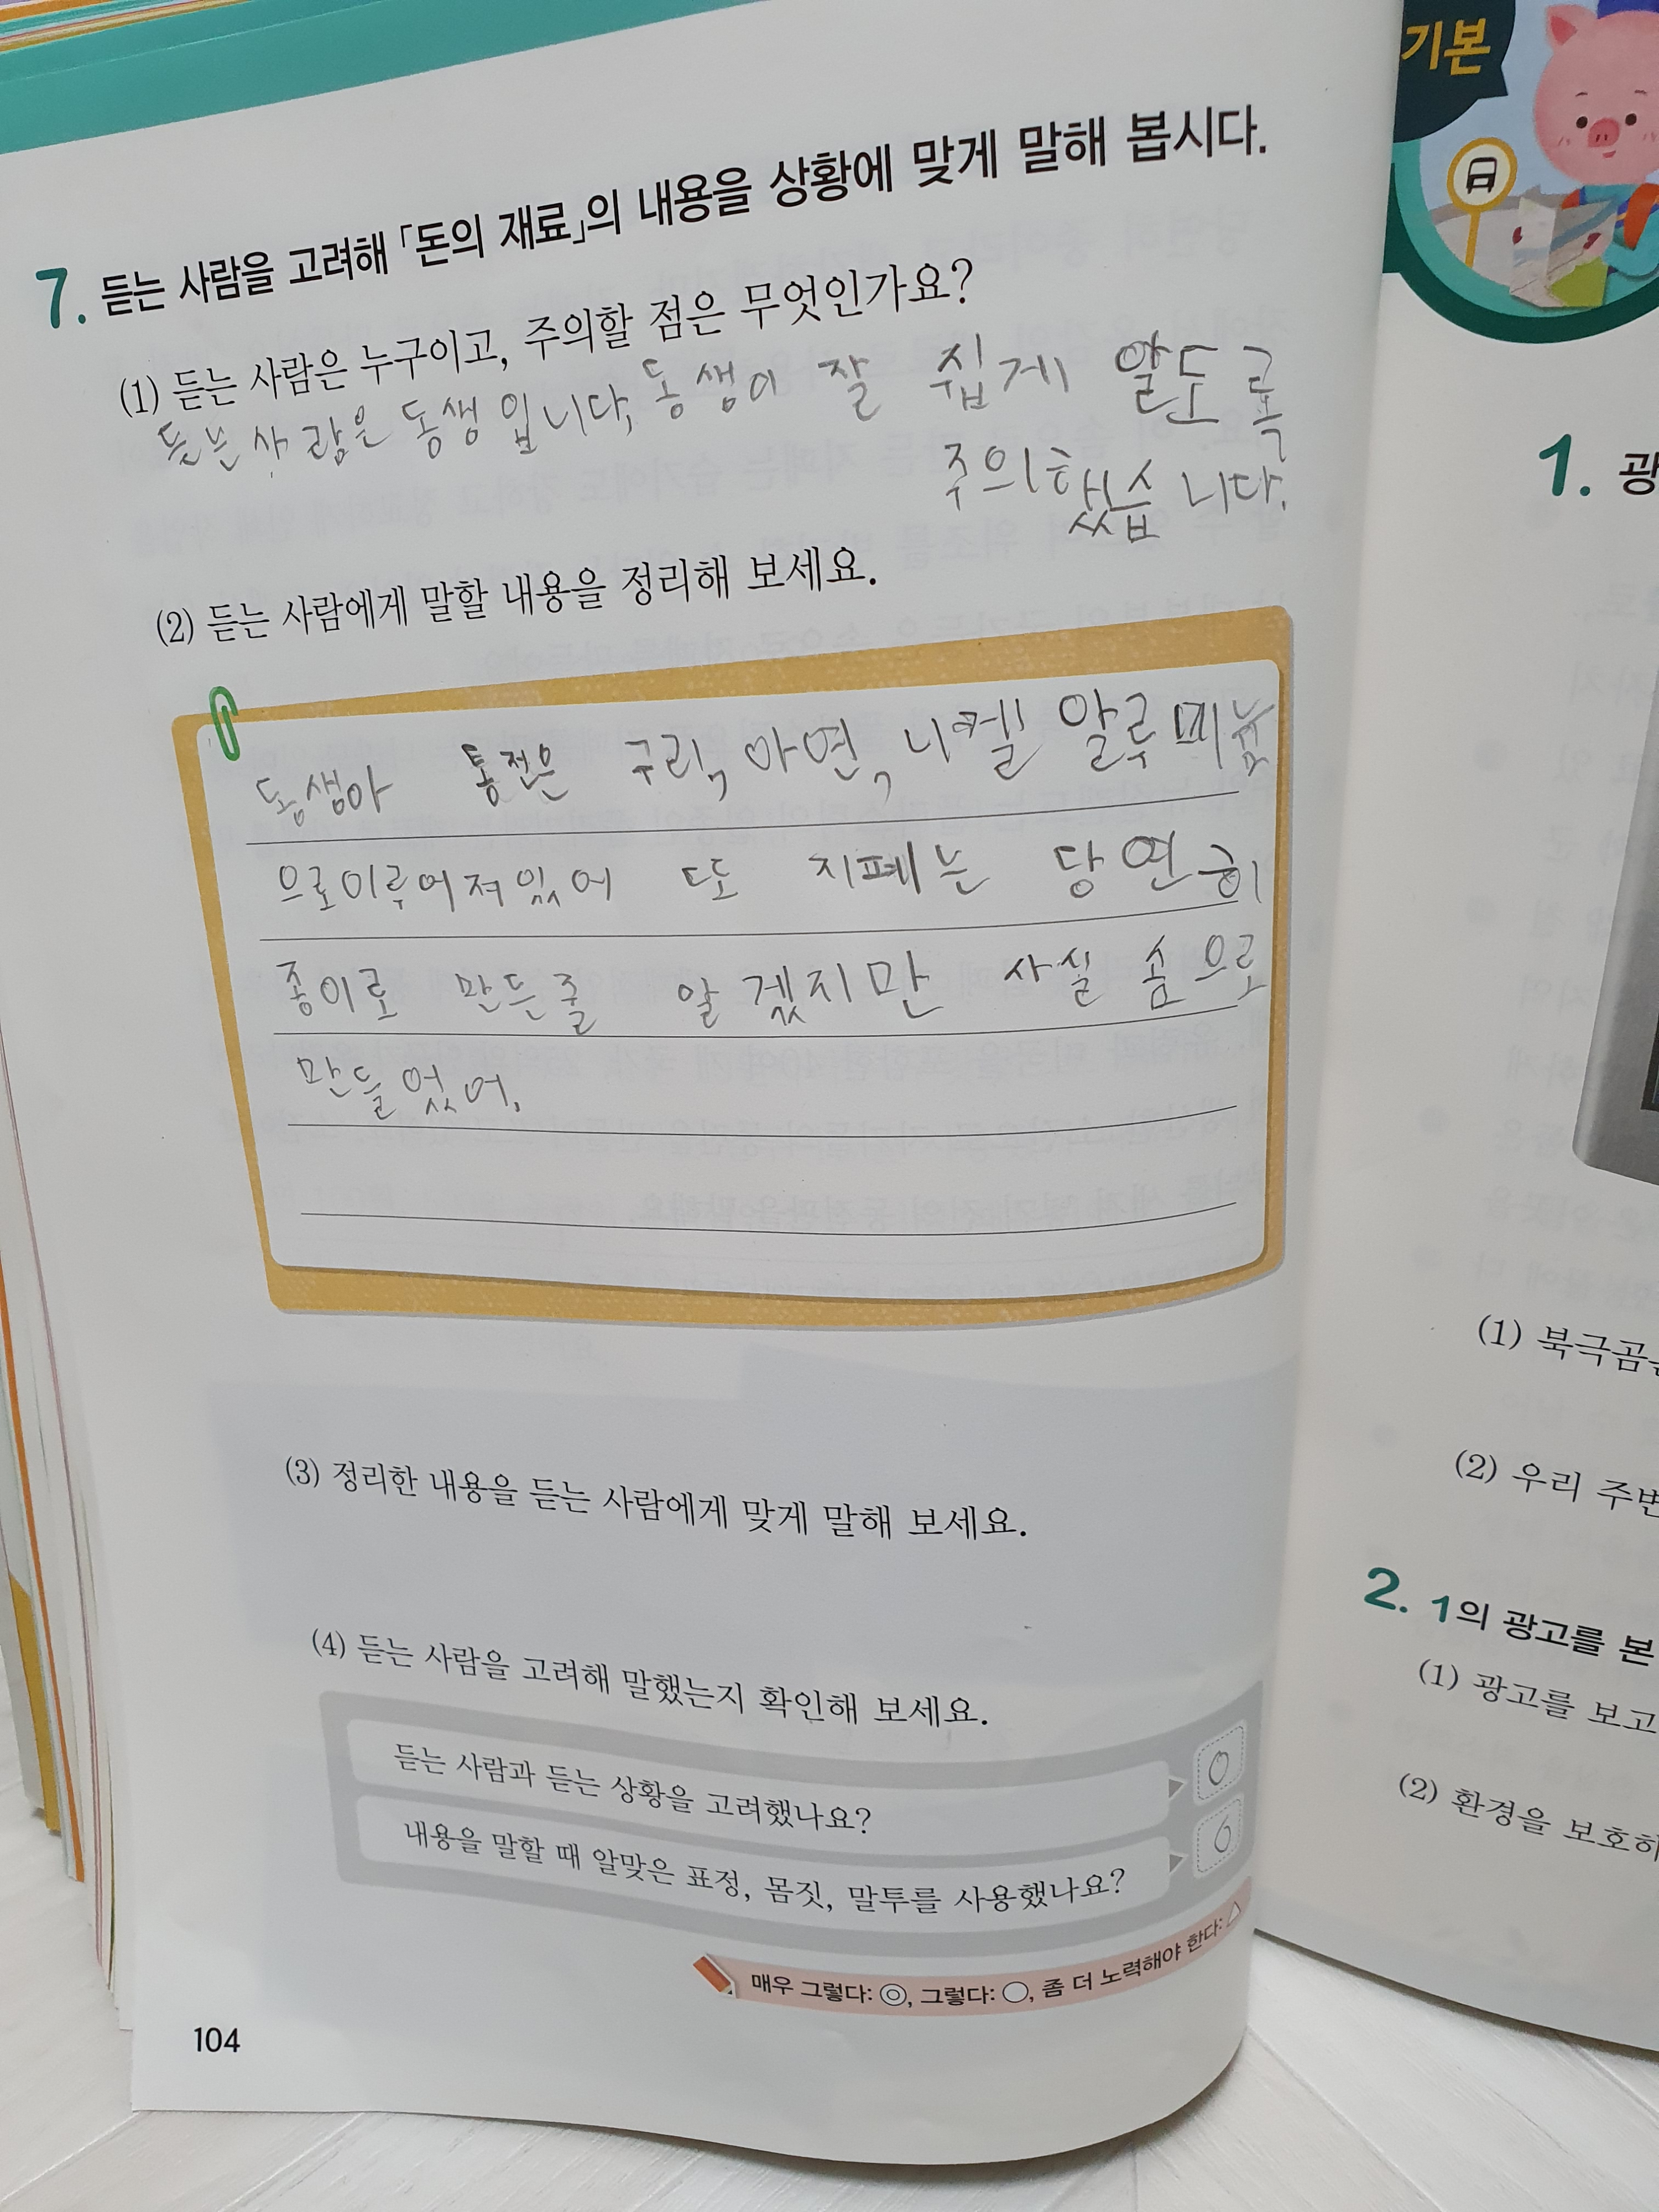 7. 듣는 사람을 고려해 「돈의 재료」의 내용을 상황에 맞게 말해 봅시다.
(1) 듣는 사람은 누구이고, 주의할 점은 무엇인가요?
듣는 사람은 동생입니다, 동생이 잘 쉽게 알도록
주의했습니다.
(2) 듣는 사람에게 말할 내용을 정리해 보세요.
동생아 통전은 구리, 아연, 니켈 알루미늄
으로이루어져있어 또 지페는 당연히
종이로 만든줄 알겠지만 사실 솜으로
만들었어.
(3) 정리한 내용을 듣는 사람에게 맞게 말해 보세요.
(4) 듣는 사람을 고려해 말했는지 확인해 보세요.
듣는 사람과 듣는 상황을 고려했나요? ○
내용을 말할 때 알맞은 표정, 몸짓, 말투를 사용했나요? ○
매우 그렇다: ◎, 그렇다: ○, 좀 더 노력해야 한다: △
104
기본
1. 광
(1) 북극곰은
(2) 우리 주변
2. 1의 광고를 본
(1) 광고를 보고
(2) 환경을 보호하